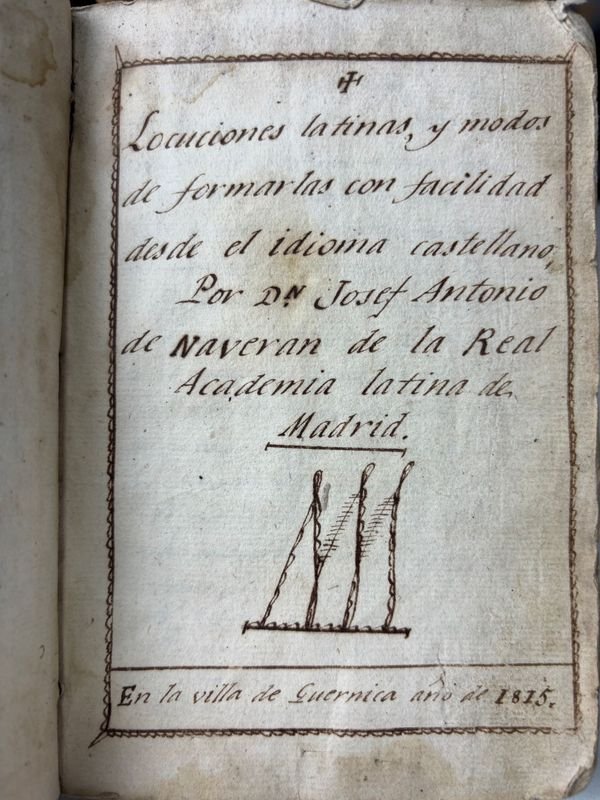 ✠
Locuciones latinas, y modos
de formarlas con facilidad
desde el idioma castellano,
Por Dn. Josef Antonio
de Naveran de la Real
Academia latina de
Madrid.
En la villa de Guernica año de 1815.